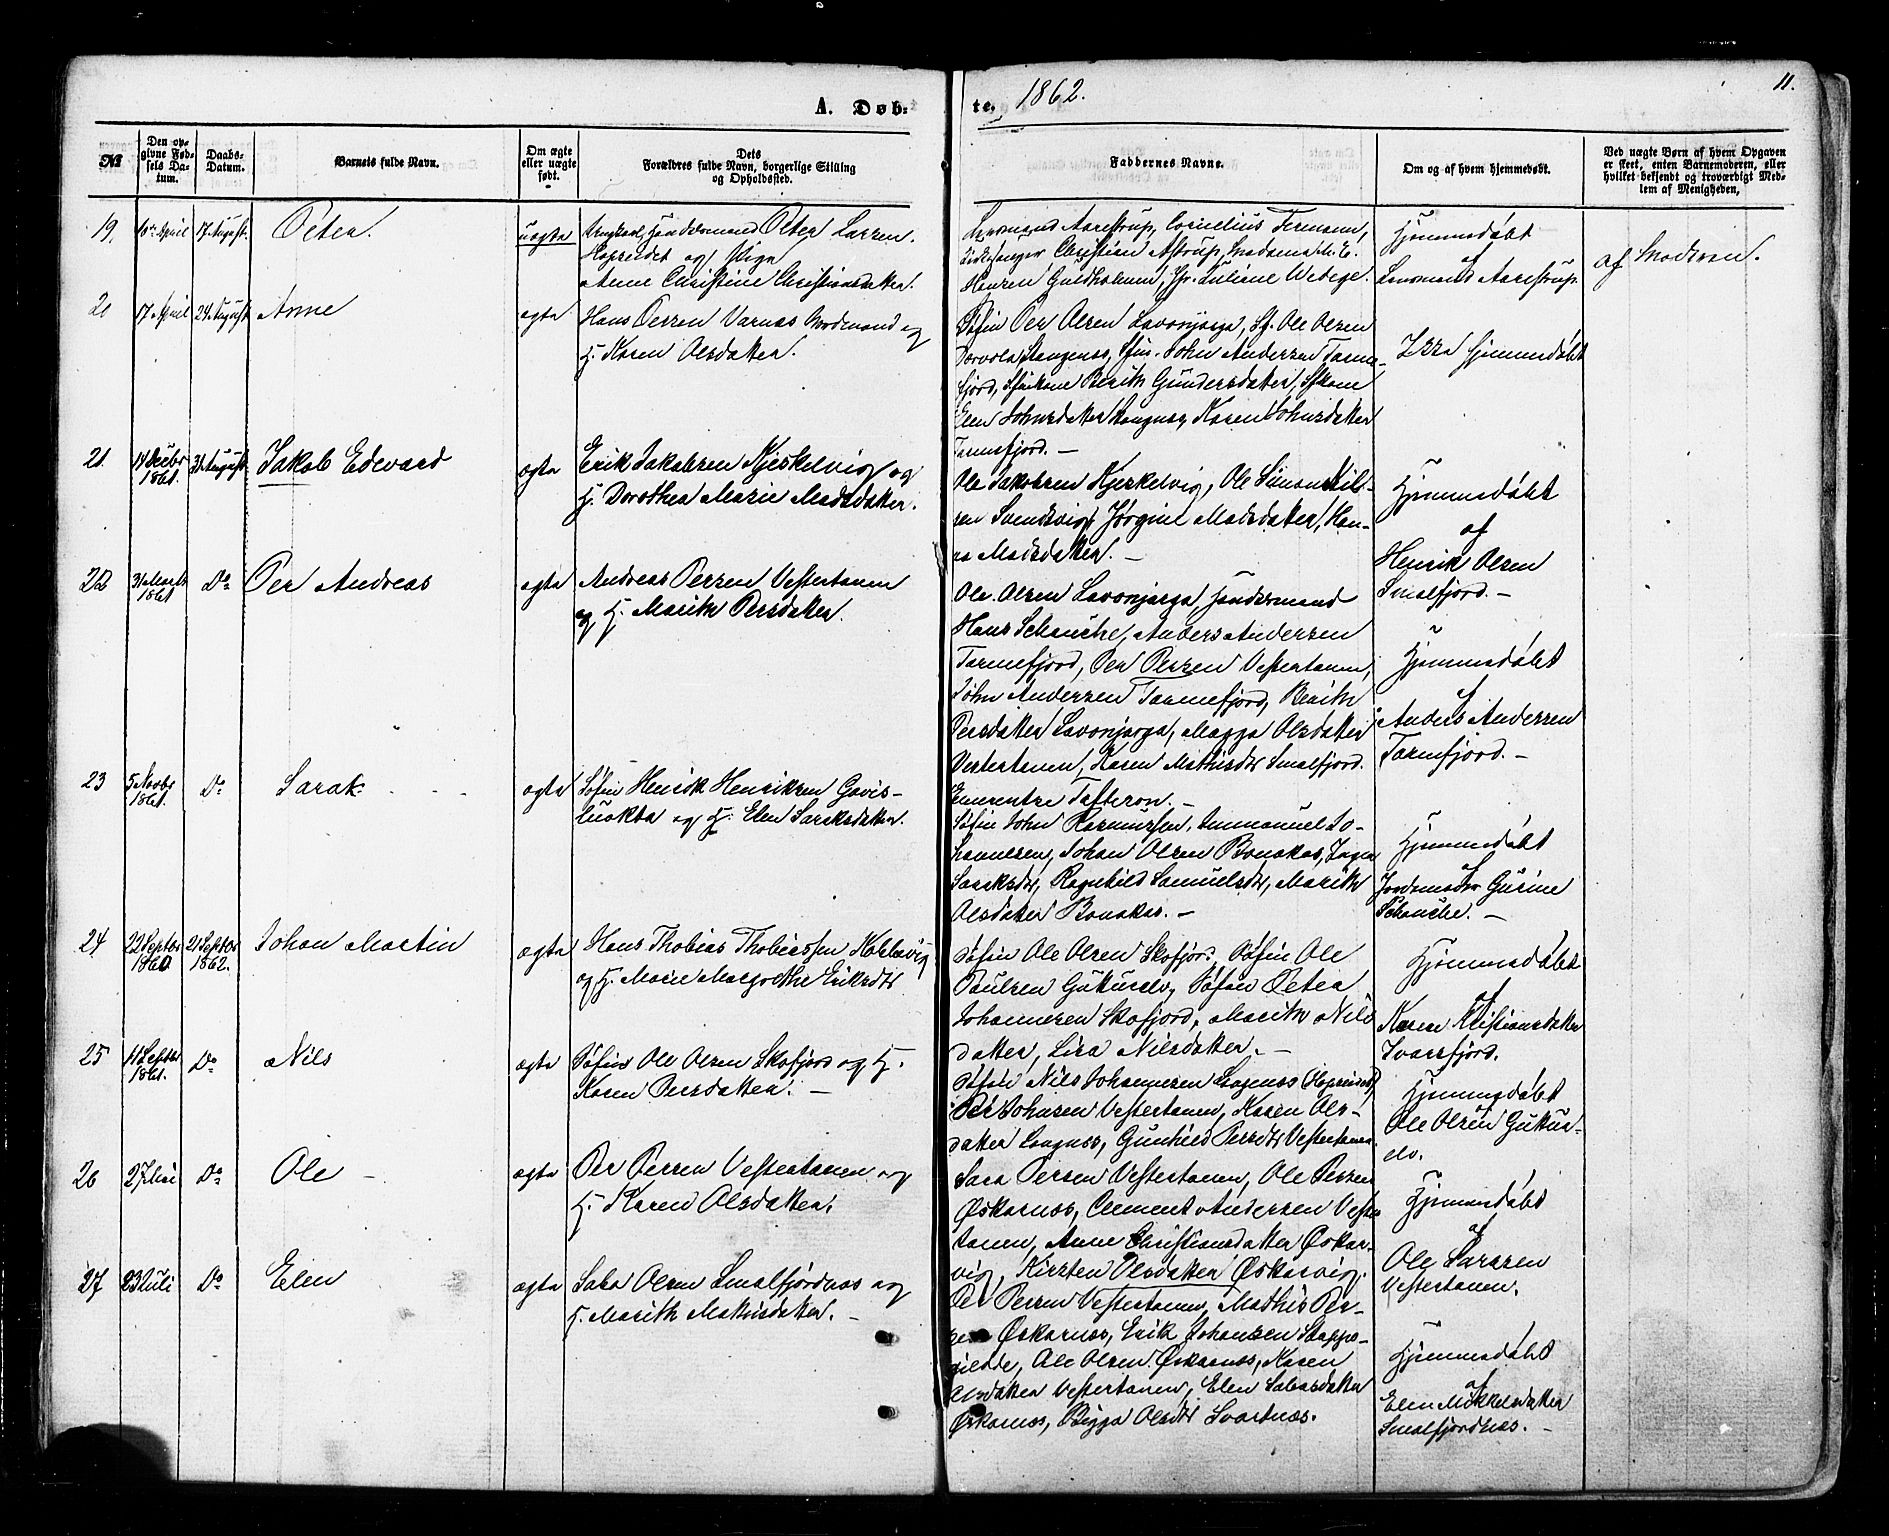 A. Døb-
te, 1862.
11.
№
Den op-
givne Fød-
sels Da-
tum.
Daabs-
Datum.
Barnets fulde Navn.
Om ægte
eller uægte
født.
Dets
Forældres fulde Navn, borgerlige Stilling
og Opholdssted.
Faddernes Navne.
Om og af hvem hjemmedøbt.
Ved uægte Børn af hvem Opgaven
er skeet, enten Barnemoderen, eller
hvilket bekjendt og troværdigt Med-
lem af Menigheden,
19.
10de April
17 August.
Peter.
uægte
Ungkarl, Handelsmand Peter Larsen,
Hopseidet og Pige
Anne Christine Christiansdatter.
Lensmand Aarestrup, Cornelius Fermann,
Kirkesanger Christian Astrup, Madame M. E.
Hansen Guldholmen, Jfr. Juliane Wedege.
Hjemmedøbt
af
Lensmand Aarestrup.
af Moderen.
20
17 April
24 August
Anne
ægte
Hans Persen Varnæs Nordmand og
H. Karen Olsdatter.
Søfin Per Olsen Lavonjarga, Sf. Ole Olsen
Langenss, Sfin. John Andersen Tarme-
fjord, Sfinkone Berith Gundersdatter, Sfkone
Elen Johnsdatter Langnes, Karen Johnsdatter
Tarmefjord. —
Ikke hjemmedøbt
21.
14 Decbr
1861.
31 August
Jakob Edevard
ægte
Erik Jakobsen Kjerkelvig og
H. Dorothea Marie Madsdatter.
Ole Jakobsen Kjerkelvig, Ole Simon Nil-
sen Svendsvig, Jørgine Madsdatter, Han-
na Madsdatter. —
Hjemmedøbt
af
Henrik Olsen
Smalfjord. —
22
31 Marts
1861
Do
Per Andreas
ægte
Andreas Persen Vestertanen
og H. Marith Persdatter.
Ole Olsen Lavonjarga, Handelsmand
Hans Schanche, Anders Andersen
Tarmefjord, Per Persen Vestertanen,
John Andersen Tarmefjord, Berith
Persdatter Lavonjarga, Magga Olsdatter
Vestertanen, Karen Mathisdtr Smalfjord.
Hjemmedøbt
af
Anders Andersen
Tarmefjord. —
23
5 Novbr
1861.
Do
Sarak
ægte
Søfin Henrik Henriksen Gavis-
luokta og H. Elen Saraksdatter.
Søfin John Rasmussen, Immanuel Jo-
hannesen, Johan Olsen Bonakas, Inga
Saraksdtr, Ragnhild Samuelsdtr, Marith
Olsdatter Bonakas. —
Hjemmedøbt
af
Jordemoder Gurine
Schanche. —
24
22 Septbr
1861
21 Septbr
1862.
Johan Martin
ægte
Hans Thobias Thobiassen
og H. Marie Margrethe Eriksdtr
Søfin Ole Olsen Skofjord, Søfin Ole
Paulsen Gukuselv, Søfin Peter
Johannesen Skofjord, Marith Nils
datter, Lisa Nilsdatter. —
Hjemmedøbt
af
Karen Kristiansdatter
Ivarsfjord.
25
11 Septbr
1861.
Do
Nils
ægte
Søfin Ole Olsen Skofjord og H.
Karen Persdatter. —
Søfin Nils Johannesen Langenss (Hopseidet)
Per Johnsen Vestertanen, Karen Ols-
datter Langnss, Gunhild Persdtr Vestertanen.
Hjemmedøbt
Ole Olsen Gukus-
elv.
26
27 Mai
Do
Ole —
ægte
Per Persen Vestertanen og
H. Karen Olsdatter.
Sara Persen Vestertanen, Ole Persen
Øskarnæs, Clement Andersen Vester
tanen, Anne Christiansdatter Øskar-
vig, Kirsten Olsdatter Øskarvig.
Hjemmedøbt
af
Ole Sarasen
Vestertanen.
27
23 Juli
Do
Elen
ægte
Saba Olsen Smalfjordnæs og
H. Marith Mathisdatter. —
Per Persen Vestertanen, Mathis Per-
sen Øskarnæs, Erik Johansen Stappo-
giedde, Ole Olsen Øskarnæs, Karen
Olsdatter Vestertanen, Elen Sabasdatter
Øskarnæs, Bigga Olsdtr Svartnæs.
Hjemmedøbt
af
Elen Mikkelsdatter
Smalfjordnæs. —